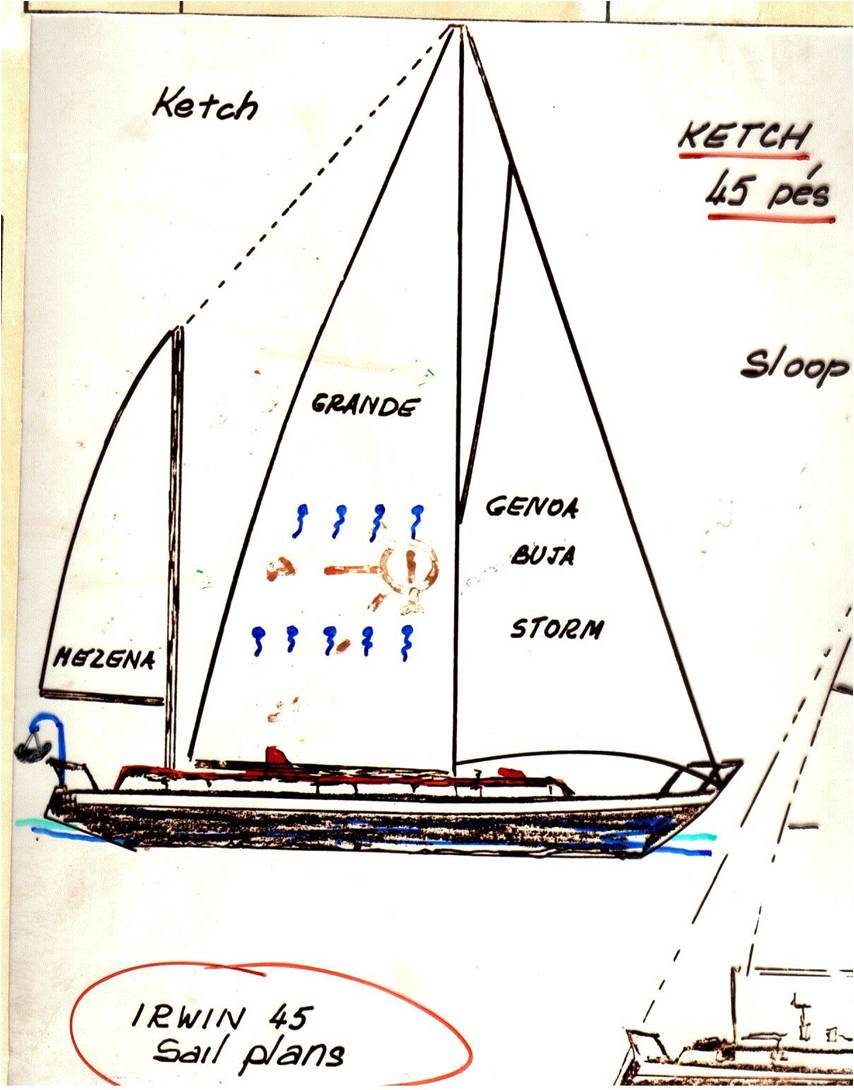 Ketch
KETCH
45 pés
Sloop
GRANDE
GENOA
BUJA
STORM
MEZENA
IRWIN 45
Sail plans